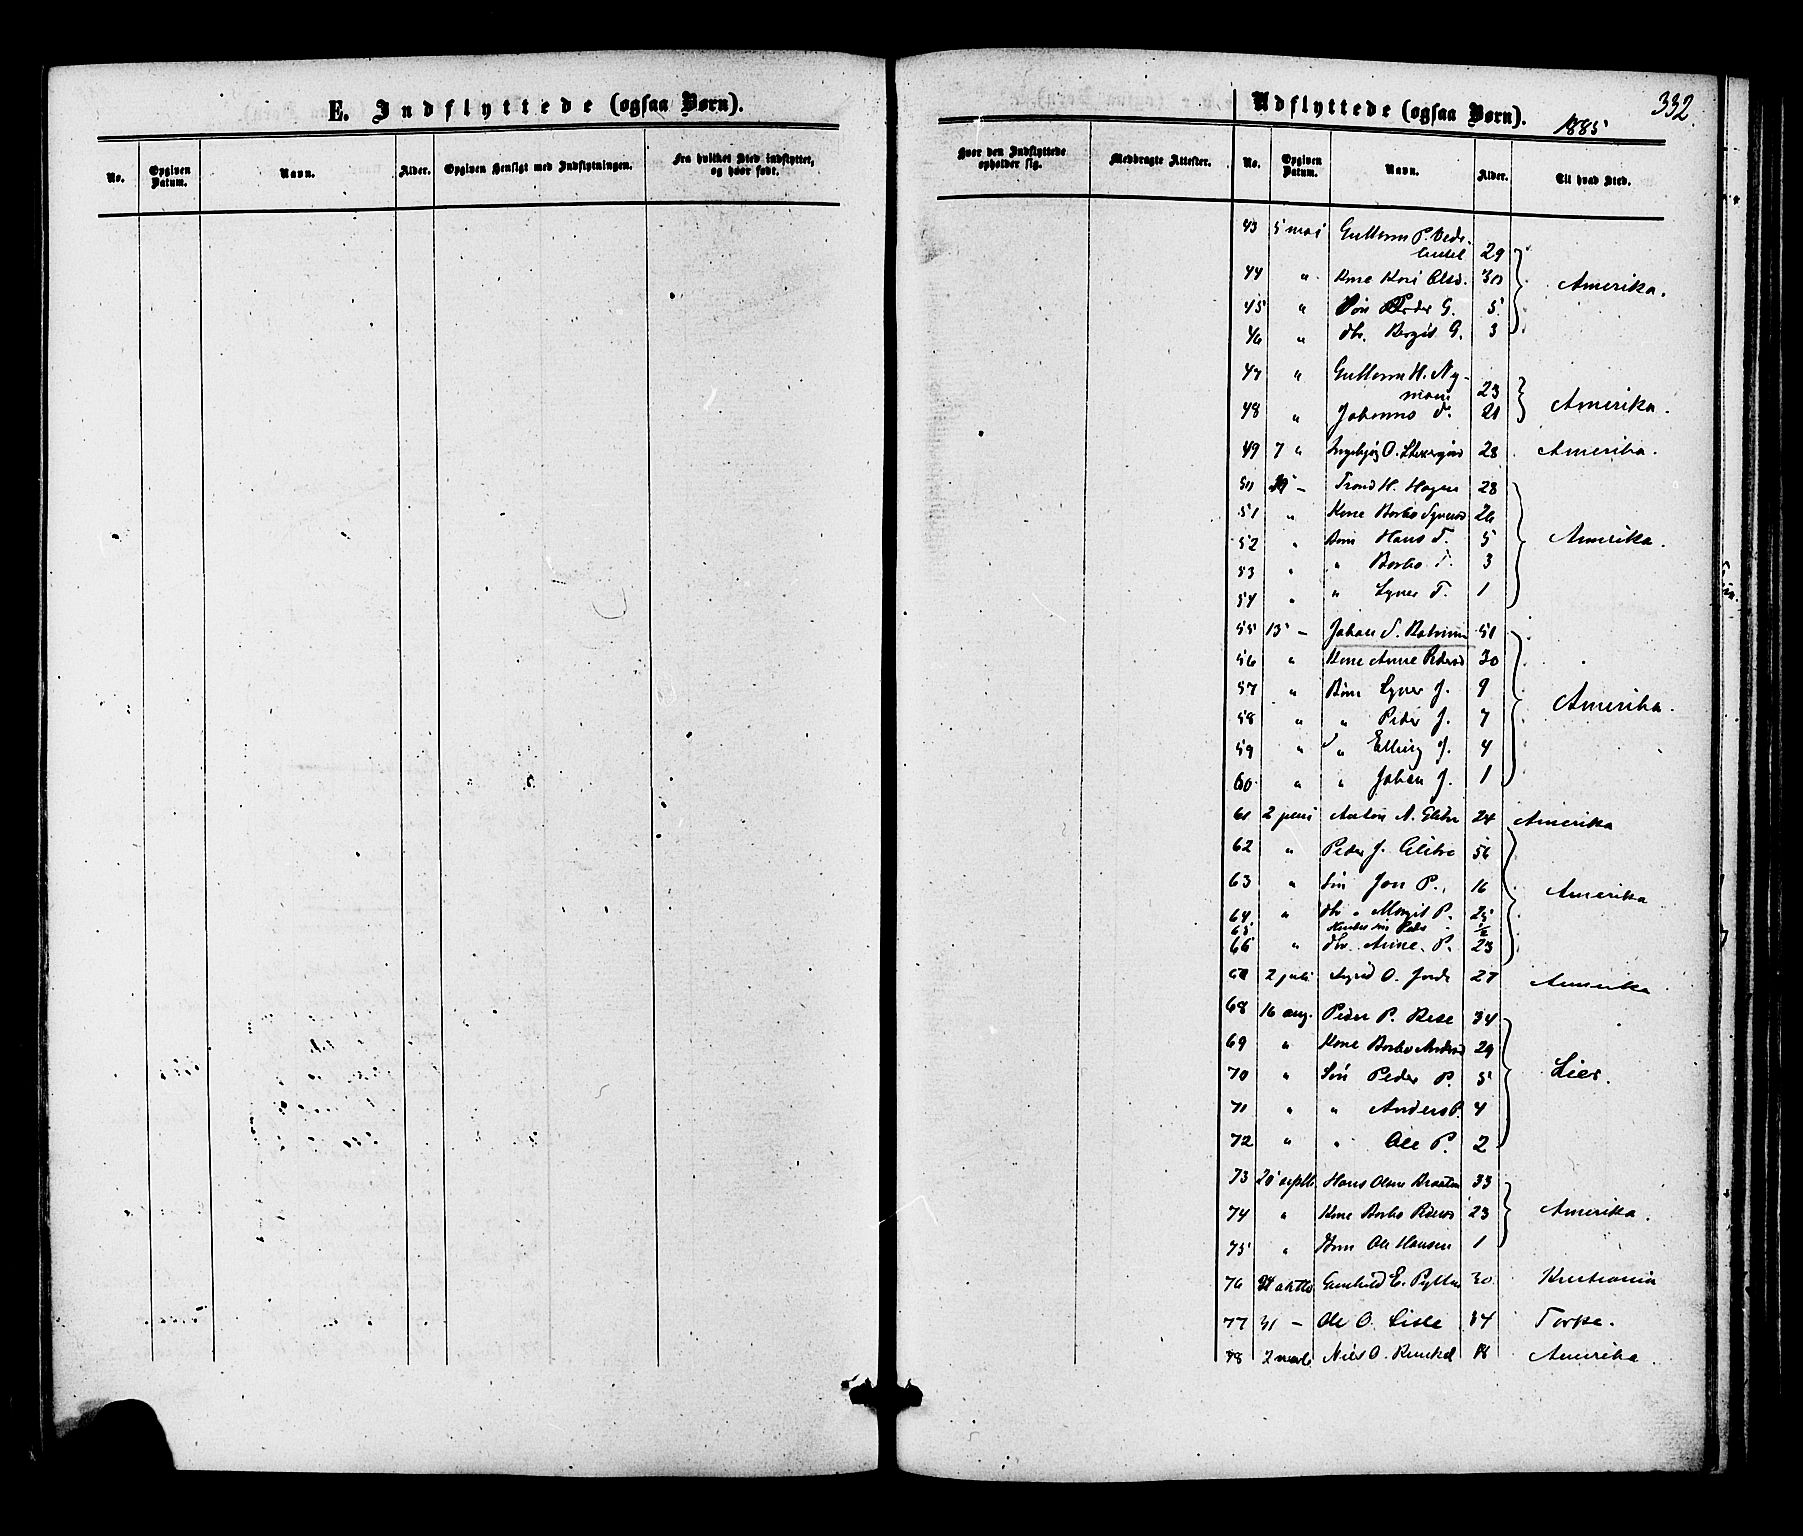 E. Indflyttede (ogsaa Børn).
No. Opgiven Datum. Navn. Alder. Opgiven Hensigt med Indflytningen. Fra hvilket Sted indflyttet, og hvor født.
Udflyttede (ogsaa Børn). 1885 332.
Hvor den Indflyttede opholder sig. Medbragte Attester. No. Opgiven Datum. Navn. Alder. Til hvad Sted.
43 5 mai Guttorm P.
29
44 " Kone Kari Olsd. 30 Amerika.
45 " Søn Peder G. 5
46 " dtr. Bergit G. 3
47 " Guttorm H. Ny-
moen 23
48 " Johannes T. 21 Amerika.
49 7 " Ingebjørg O. 28 Amerika.
50 Trond H. Hagen 28
51 " Kone Barbo Syversd 26
52 " Børn Hans T. 5 Amerika.
53 " " Barbo T. 3
54 " " Syver T. 1
55 13 – Johan S. 51
56 " Kone Anne Pedersd 30
57 " Børn Syver J. 9
58 " " Peder J. 7 Amerika.
59 " " Elling J. 4
60 " " Johan J. 1
61 2 juni Anton A. 24 Amerika
62 " Peder J. 56
63 " Søn Jon P. 16 Amerika
64 " dtr " Margit P. 25
65 ½
66 " dtr. Anne P. 23
67 2 juli Sigrid O. Jorde 27 Amerika
68 16 aug. Peder P. 34
69 " Kone Barbo Andersd 29
70 " Søn Peder P. 5 Lier.
71 " " Anders P. 4
72 " " Ole P. 2
73 20 septb Hans Olsen Braaten 33
74 " Kone Barbo Pedersd 23 Amerika.
75 " Børn Ole Hansen 1
76 Gunhild E. 30 Kristiania
77 31 – Ole O. Torpe.
78 2 Nils O. 18 Amerika